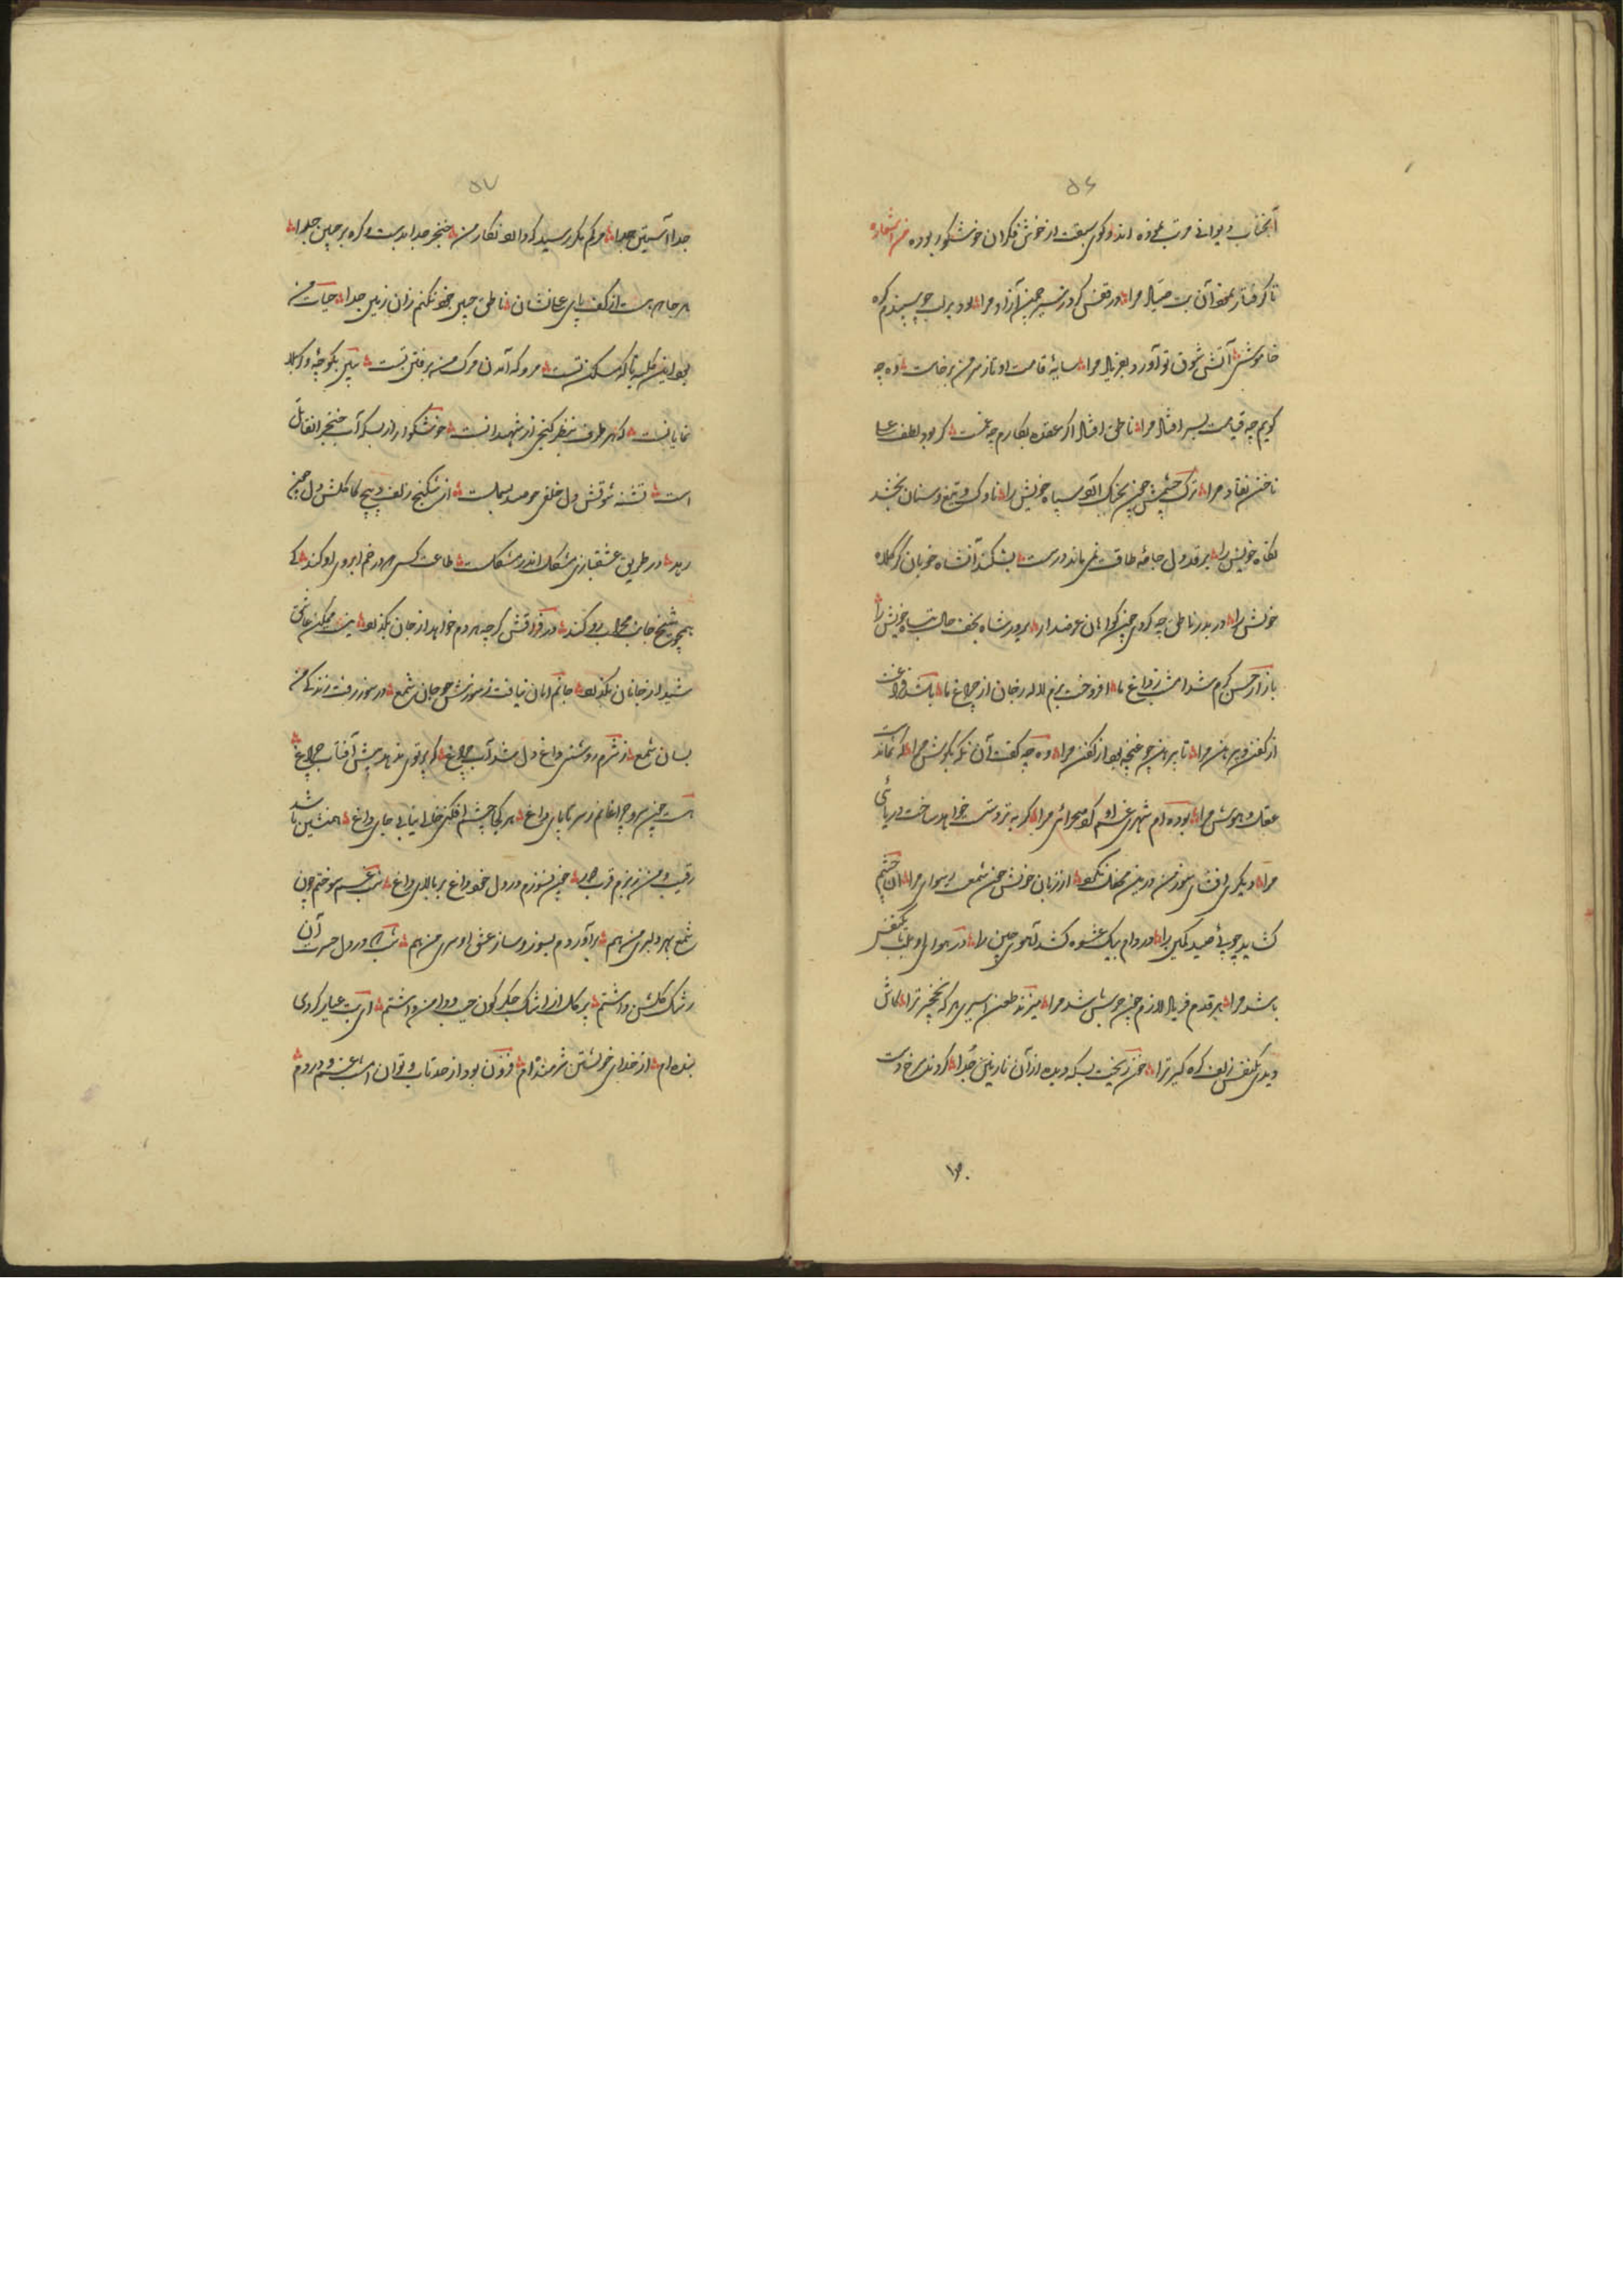 ۵۶
آنجناب دیوانی مرتب نموده اند و گوی سبقت از خوش فکران خوشگو ربوده من اشعاره
تا گرفتار بخود آن بت صیاد مرا در قفس کرد ز سیر چمن آزاد مرا بود بر لب چو سپندم گره
خاموشی آتش شوق تو آورد بفریاد مرا سایهٔ قامت او تا ز سر من برخاست وه چه
گویم چه قیامت بسر افتاد مرا ناطق افتاد اگر عقده بکارم چه غمست گر بود لطف علی
ناخن نقاد مرا ترک چشمش چون بجنگ آرد سپاه خویش را ناوک و تیغ و سنان بخشد
نگاه خویش را بر قد دل جامهٔ طاقت نمی ماند درست بشکند آن شاه خوبان گر کلاه
خویش را در بدر ناطق چه گردی چون گدایان عرضه دار بر در شاه نجف حال تباه خویش را
بازار حسن گرم شد امشب ز داغ ما افروخت بزم لاله رخان از چراغ ما باشد فراغت
از کفن و پیرهن مرا تا پیرهن چو غنچه بود از کفن مرا وه چه گفت آن نگه بگوش مرا که نماند
عقل و هوش مرا بوده ام شهری غم او کرد صحرائی مرا گریه تردست خواهد ساخت دریائی
مرا دیگری افشای سوز من درین محفل نکرد از زبان خویش چون شمعست رسوائی مرا آن چشم
گشاید چو پی صید کمین را در دام بیک عشوه کشد آهوی چین را در هوای او بلب تا یکنفس
باشد مرا هر قدم فریاد لازم چون جرس باشد مرا میزند طعن اسیری هر که نخچیر ترا کاش
دیدی یکنفس زلف گره گیر ترا خون ریخت بسکه دیده از آن نازنین جدا گردید سرخ دست
۵۷
جدا آستین جدا مرگم بگو رسید که دارد نگار من خنجر جدا بدست و گره بر جبین جدا
هر جا بود از کف پای نشان ناطق جبین خود نکنم زان زمین جدا حیات من
بود این گلیه تا که مسکن تست مرو که آمدن مرگ من برفتن تست بین بکوچهٔ و کربلا
نمایانست که هر طرف بنظر گنجی از شهیدانست خوشگوار از بسکه آب خنجر آن قاتل
است تشنه شوقش دل خلقی چو صید بسملست از شکنج زلف و پیچ کاکلش دل چون
رهد در طریق عشقبازی مشکل اندر مشکلست طاعت کس در خم ابروی او کند کی
همچو شیخ جانب محراب رو کند در فراقش گرچه هر دم خواهد از جان بگذرد نیست ممکن عاشق
شیدا ز جانان بگذرد جانم امان نیافت ز سوزش چو جان شمع در سوز رفت زندگی من
بسان شمع از شرم روشنی داغ دل شد آب چراغ که پرتوی ندهد پیش آفتاب چراغ
هست چون سرو چراغانم ز سر تا پای داغ هر کجا چشم افکنی خالی نیابی جای داغ همنشین باشد
رقیب و من ز بزم قرب دور چون نسوزم در دل خود داغ بر بالای داغ شب غم سوختم چون
شمع بهر دلبری من هم برآوردم بسوز و ساز عشق او سری من هم شب که در دل حسرت آن
رشک گلشن داشتم پر گل از اشک جگرگون جیب و دامن داشتم ای بت عیار کردی
بنده ام از خدای خویشتن شرمنده ام فزون بود از حد تاب و توان امشب غم و دردم